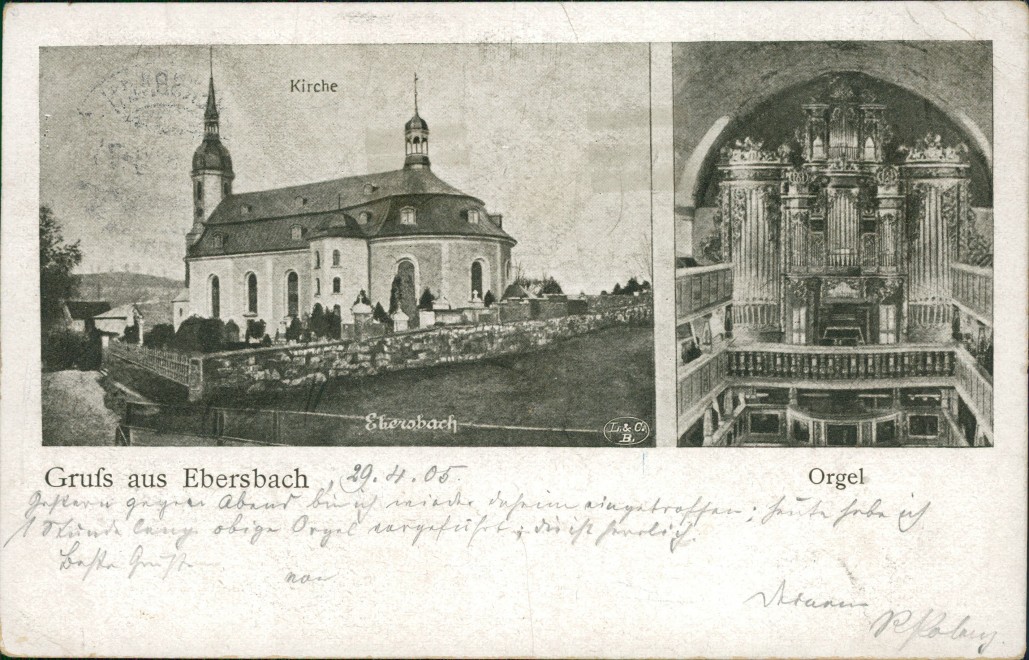 Kirche
Ebersbach
L. & C.
B.
Gruſs aus Ebersbach, 29.4.05.
Orgel
Gestern gegen Abend bin ich wieder daheim eingetroffen; heute habe ich
1 Stunde lang obige Orgel vorgeführt; die ist herrlich.
Beste Grüße
von